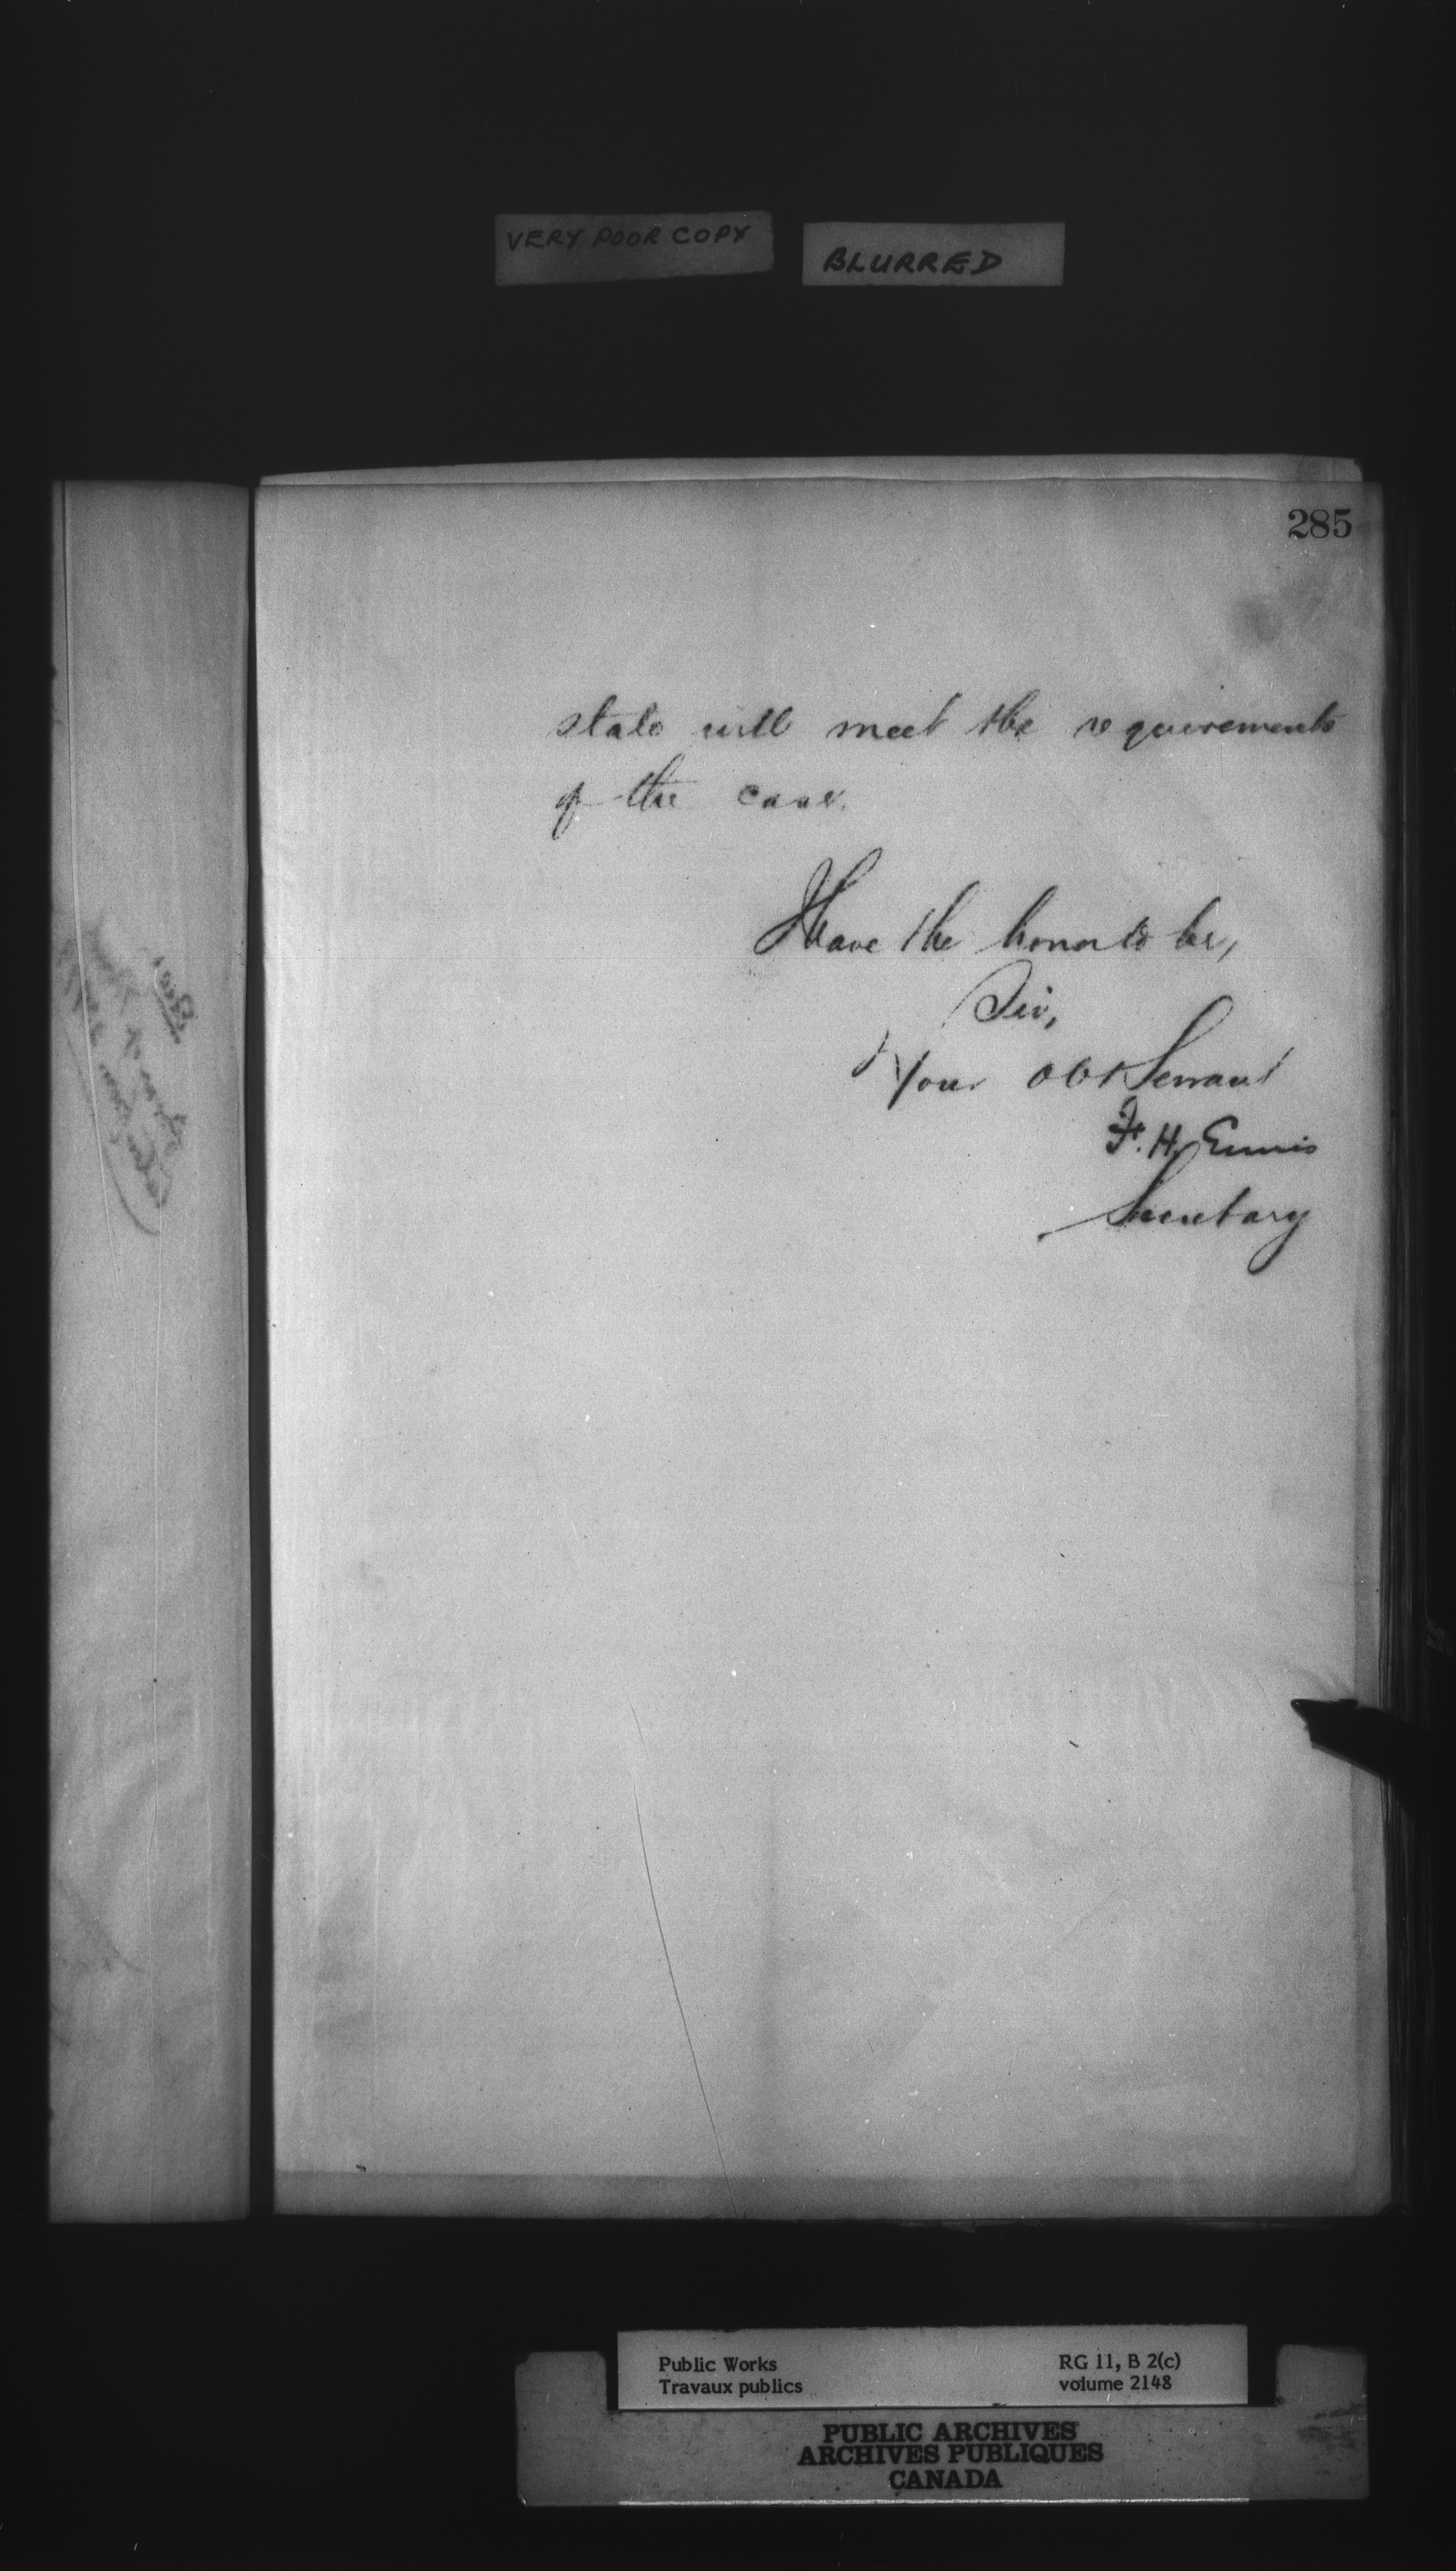 VERY POOR COPY
BLURRED
285
state will meet the requirements
of the case.
I have the honor to be,
Sir,
Your Obt Servant
F. H. Ennis
Secretary
Public Works
Travaux publics
RG 11, B 2(c)
volume 2148
PUBLIC ARCHIVES
ARCHIVES PUBLIQUES
CANADA